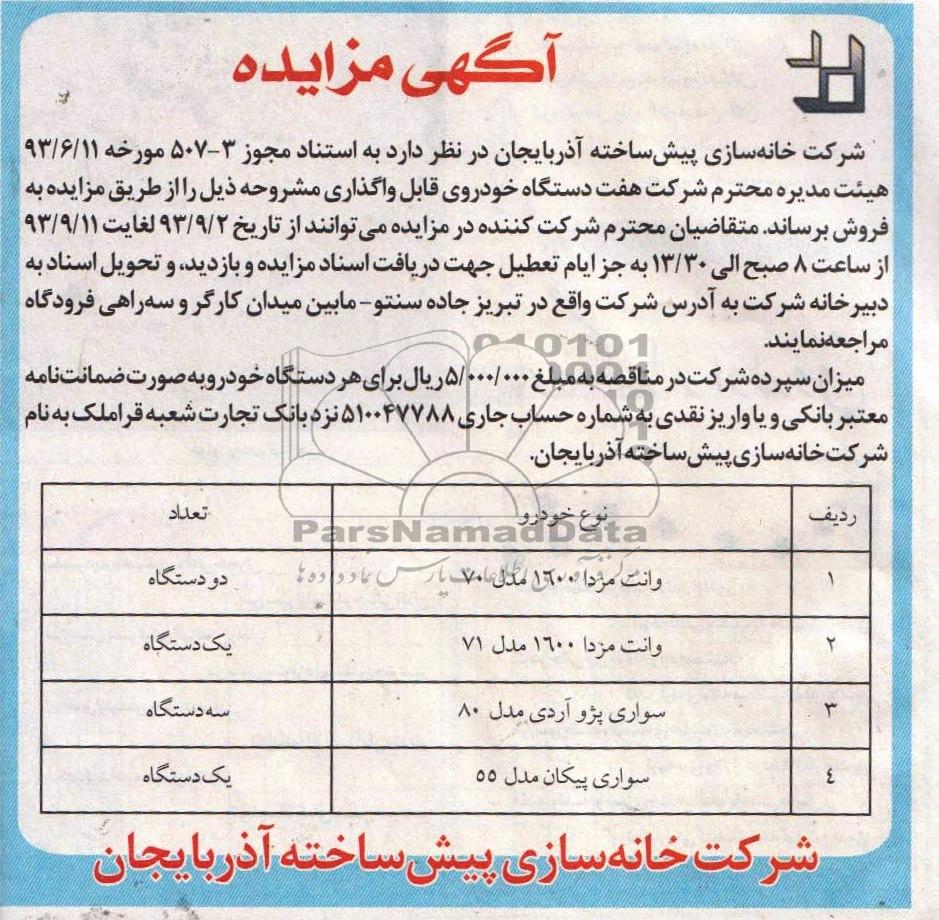 آگهی مزایده
شرکت خانه‌سازی پیش‌ساخته آذربایجان در نظر دارد به استناد مجوز ۳-۵۰۷ مورخه ۹۳/۶/۱۱
هیئت مدیره محترم شرکت هفت دستگاه خودروی قابل واگذاری مشروحه ذیل را از طریق مزایده به
فروش برساند. متقاضیان محترم شرکت کننده در مزایده می‌توانند از تاریخ ۹۳/۹/۲ لغایت ۹۳/۹/۱۱
از ساعت ۸ صبح الی ۱۳/۳۰ به جز ایام تعطیل جهت دریافت اسناد مزایده و بازدید، و تحویل اسناد به
دبیرخانه شرکت به آدرس شرکت واقع در تبریز جاده سنتو- مابین میدان کارگر و سه‌راهی فرودگاه
مراجعه‌نمایند.
میزان سپرده شرکت در مناقصه به مبلغ ۵/۰۰۰/۰۰۰ ریال برای هر دستگاه خودرو به صورت ضمانت‌نامه
معتبر بانکی و یا واریز نقدی به شماره حساب جاری ۵۱۰۰۴۷۷۸۸ نزد بانک تجارت شعبه قراملک به نام
شرکت خانه‌سازی پیش‌ساخته آذربایجان.
ردیف نوع خودرو تعداد
ParsNamadData
۱ وانت مزدا ۱۶۰۰ مدل ۷۰ دو دستگاه
۲ وانت مزدا ۱۶۰۰ مدل ۷۱ یک دستگاه
۳ سواری پژو آردی مدل ۸۰ سه دستگاه
۴ سواری پیکان مدل ۵۵ یک دستگاه
شرکت خانه‌سازی پیش‌ساخته آذربایجان